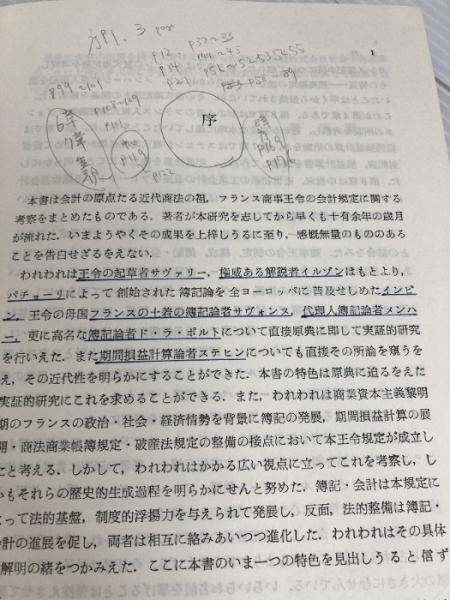 P1. 3
P12
P14
P32~33
P99~101
1
序
6章
7章
本書は会計の原点たる近代商法の祖，フランス商事王令の会計規定に関する
考察をまとめたものである．著者が本研究を志してから早くも十有余年の歳月
が流れた．いまようやくその成果を上梓しうるに至り，感慨無量のもののある
ことを告白せざるをえない．
われわれは王令の起草者サヴァリー，権威ある解説者イルゾンはもとより，
パチョーリによって創始された簿記論を全ヨーロッパに普及せしめたインピ
ン，王令の母国フランスの土着の簿記論者サヴォンヌ，代理人簿記論者メンハ
ー，更に高名な簿記論者ド・ラ・ポルトについて直接原典に即して実証的研究
を行いえた．また期間損益計算論者ステヒンについても直接その所論を窺うを
え，その近代性を明らかにすることができた．本書の特色は原典に迫るをえた
実証的研究にこれを求めることができる．また，われわれは商業資本主義黎明
期のフランスの政治・社会・経済情勢を背景に簿記の発展，期間損益計算の展
開・商法商業帳簿規定・破産法規定の整備の接点において本王令規定が成立し
こと考える．しかして，われわれはかかる広い視点に立ってこれを考察し，し
もそれらの歴史的生成過程を明らかにせんと努めた．簿記・会計は本規定に
って法的基盤，制度的浮揚力を与えられて発展し，反面，法的整備は簿記・
会計の進展を促し，両者は相互に絡みあいつつ進化した．われわれはその具体
解明の緒をつかみえた．ここに本書のいま一つの特色を見出しうると信ず